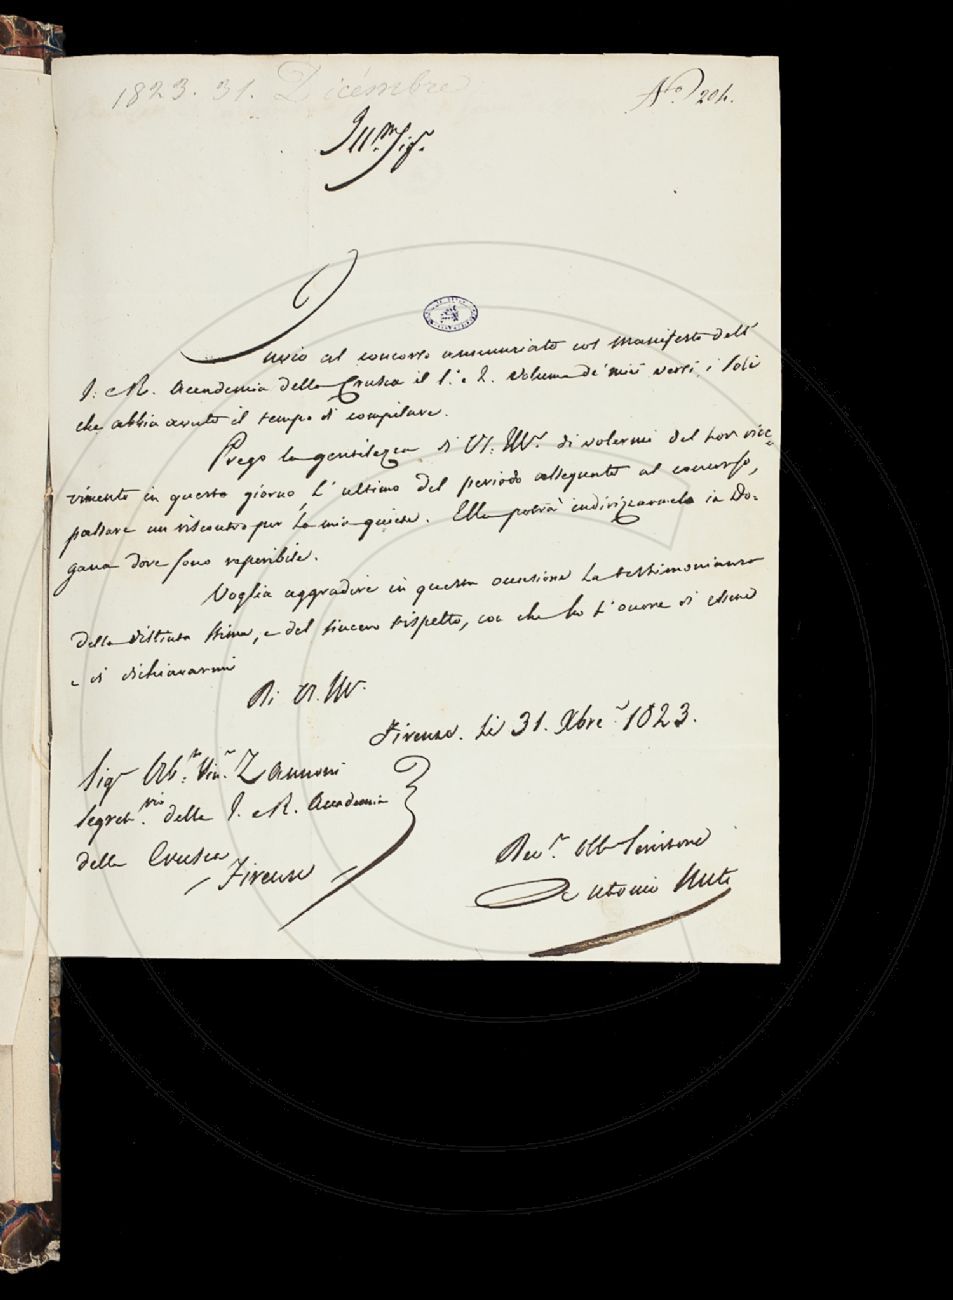 1823. 31. Dicémbre
N.ro 204.
Ill.mo Sig.r
Invio al concorso annunziato col Manifesto dell'
I. e R. Accademia della Crusca il 1.o e 2. Volume de' miei versi, i soli
che abbia avuto il tempo di compilare.
Prego la gentilezza di V. S. Ill. di volermi del lor rice=
vimento in questo giorno, l'ultimo del periodo assegnato al concorso,
passare un riscontro per la mia quiete. Ella potrà indirizzarmelo in Do-
gana dove sono reperibile.
Voglia aggradire in questa occasione la testimonianza
della distinta stima, e del sincero rispetto, con che ho l'onore di essere
e di dichiararmi
Di V. S. Ill.
Firenze. Li 31. Xbre 1823.
Sig.r Ab.te Zannoni
Segret.rio della I. e R. Accademia
della Crusca
Firenze
Dev.o Obb Servitore
Antonio Nuti